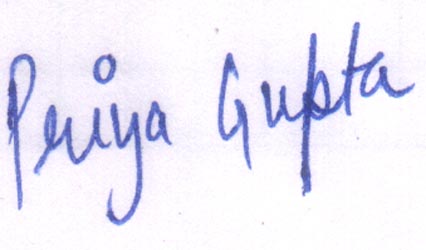 Priya Gupta